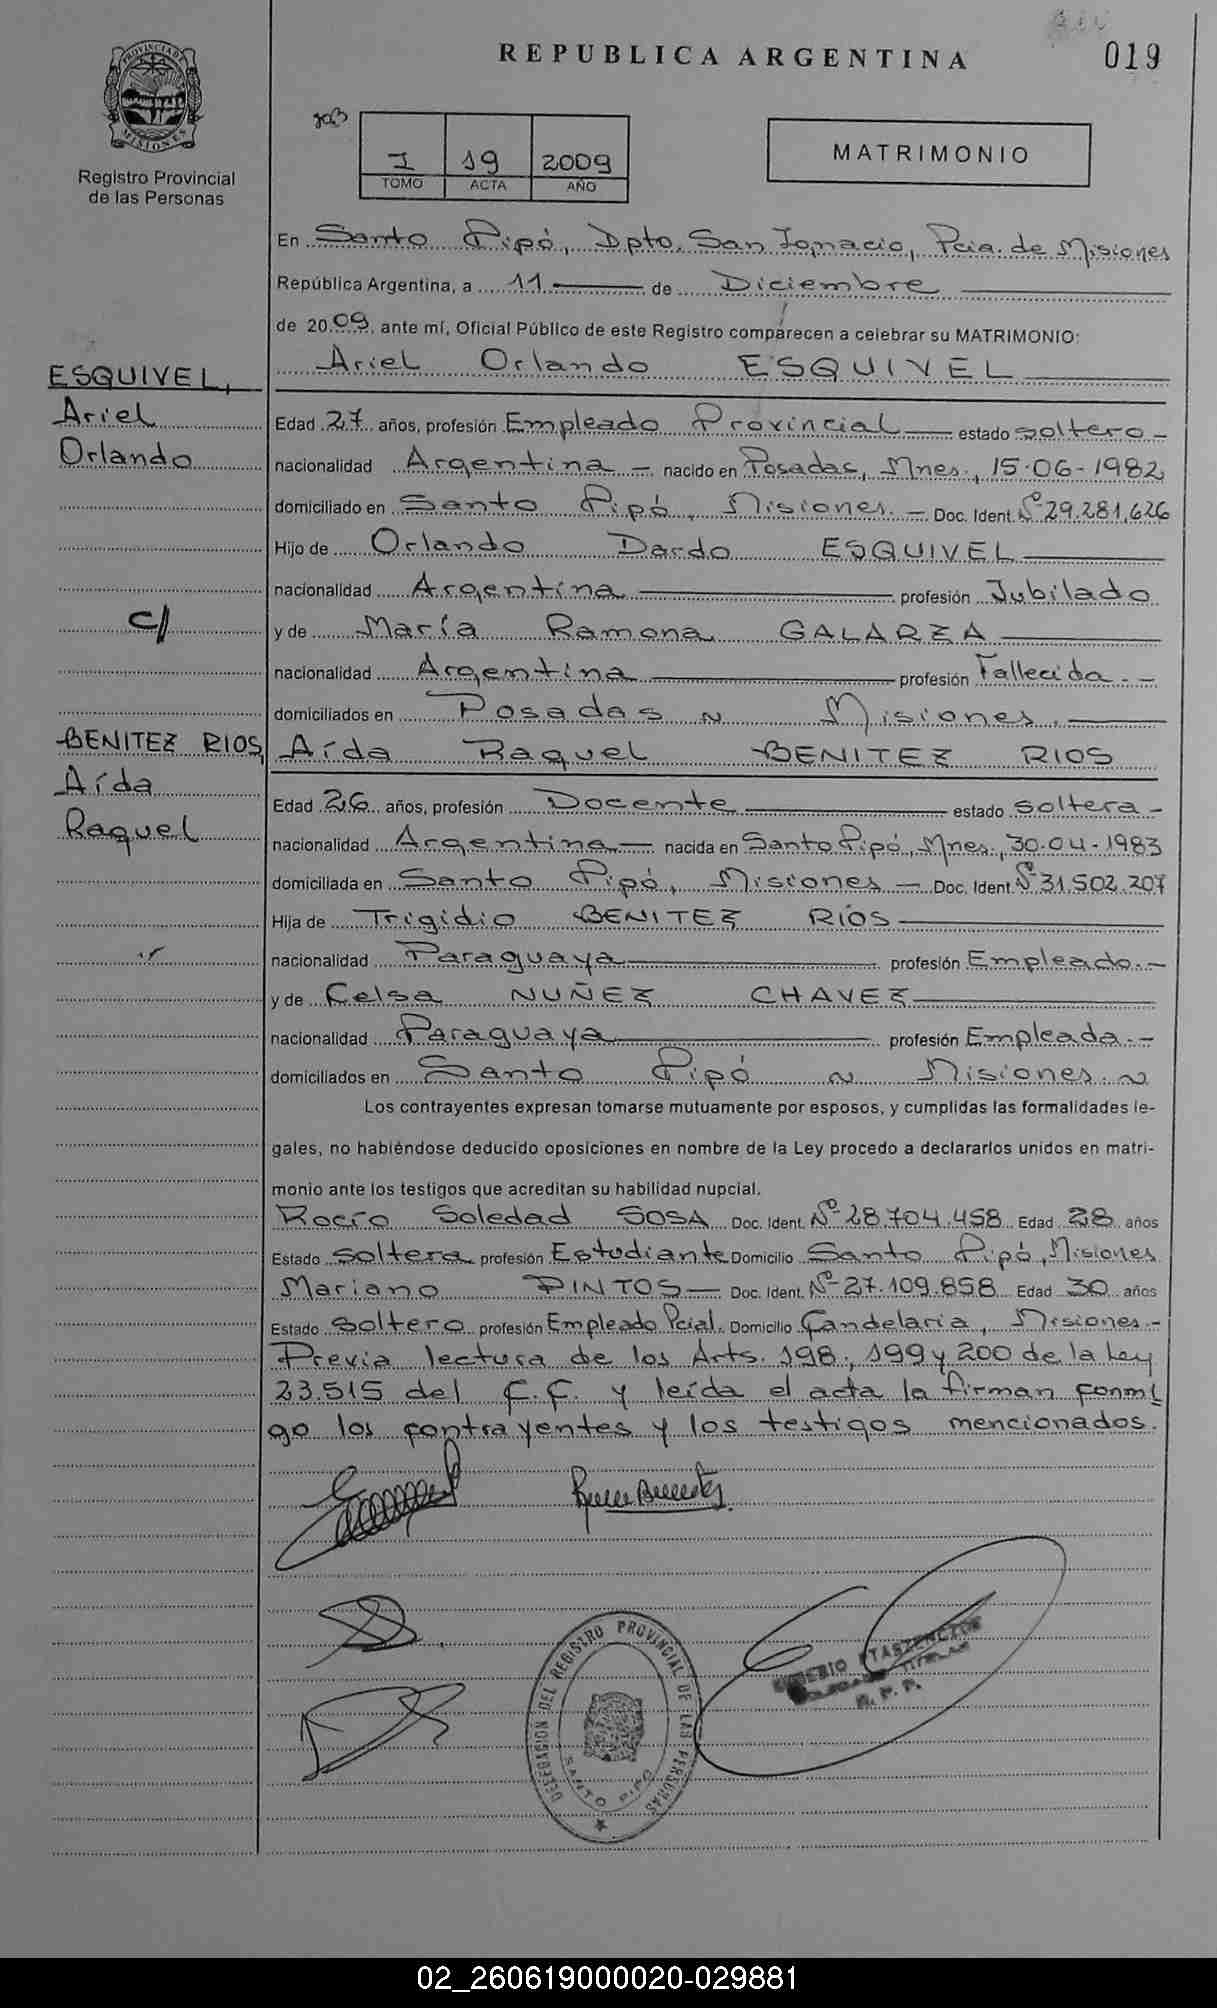 REPUBLICA ARGENTINA
019
PROVINCIA DE MISIONES
Registro Provincial
de las Personas
I 19 2009
TOMO ACTA AÑO
MATRIMONIO
En Santo Pipó, Dpto. San Ignacio, Pcia. de Misiones
República Argentina, a 11 de Diciembre
de 2009, ante mí, Oficial Público de este Registro comparecen a celebrar su MATRIMONIO:
Ariel Orlando ESQUIVEL
ESQUIVEL,
Ariel
Orlando
Edad 27 años, profesión Empleado Provincial estado soltero -
nacionalidad Argentina - nacido en Posadas, Mnes., 15-06-1982
domiciliado en Santo Pipó, Misiones. - Doc. Ident. Nº 29.281.626
Hijo de Orlando Dardo ESQUIVEL
nacionalidad Argentina profesión Jubilado
c/
y de María Ramona GALARZA
nacionalidad Argentina profesión Fallecida. -
domiciliados en Posadas ~ Misiones.
BENITEZ RIOS,
Aída
Raquel
Aída Raquel BENITEZ RIOS
Edad 26 años, profesión Docente estado soltera -
nacionalidad Argentina - nacida en Santo Pipó, Mnes., 30-04-1983
domiciliada en Santo Pipó, Misiones - Doc. Ident. Nº 31.502.207
Hija de Trigidio BENITEZ RÍOS
nacionalidad Paraguaya profesión Empleado. -
y de Celsa NUÑEZ CHAVEZ
nacionalidad Paraguaya profesión Empleada. -
domiciliados en Santo Pipó ~ Misiones. ~
Los contrayentes expresan tomarse mutuamente por esposos, y cumplidas las formalidades le-
gales, no habiéndose deducido oposiciones en nombre de la Ley procedo a declararlos unidos en matri-
monio ante los testigos que acreditan su habilidad nupcial.
Rocío Soledad SOSA Doc. Ident. Nº 28.704.458 Edad 28 años
Estado soltera profesión Estudiante Domicilio Santo Pipó, Misiones
Mariano PINTOS - Doc. Ident. Nº 27.109.858 Edad 30 años
Estado soltero profesión Empleado Pcial. Domicilio Candelaria, Misiones -
Previa lectura de los Arts. 198, 199 y 200 de la Ley
23.515 del C.C. y leída el acta la firman conmi
go los contrayentes y los testigos mencionados.
DELEGACION DEL REGISTRO PROVINCIAL DE LAS PERSONAS
SANTO PIPO
TITULAR
R. P. P.
02_260619000020-029881